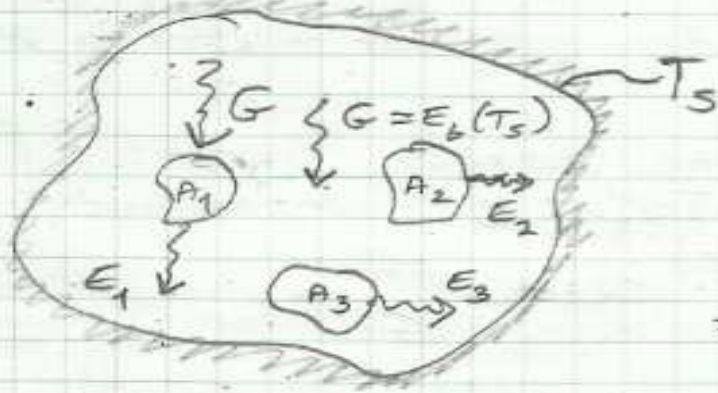 T_s
G
G = E_b(T_s)
A_1
A_2
E_2
E_1
A_3
E_3